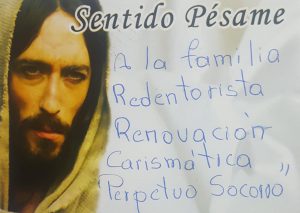 Sentido Pésame
A la familia
Redentorista
Renovación
Carismática
Perpetuo Socorro"